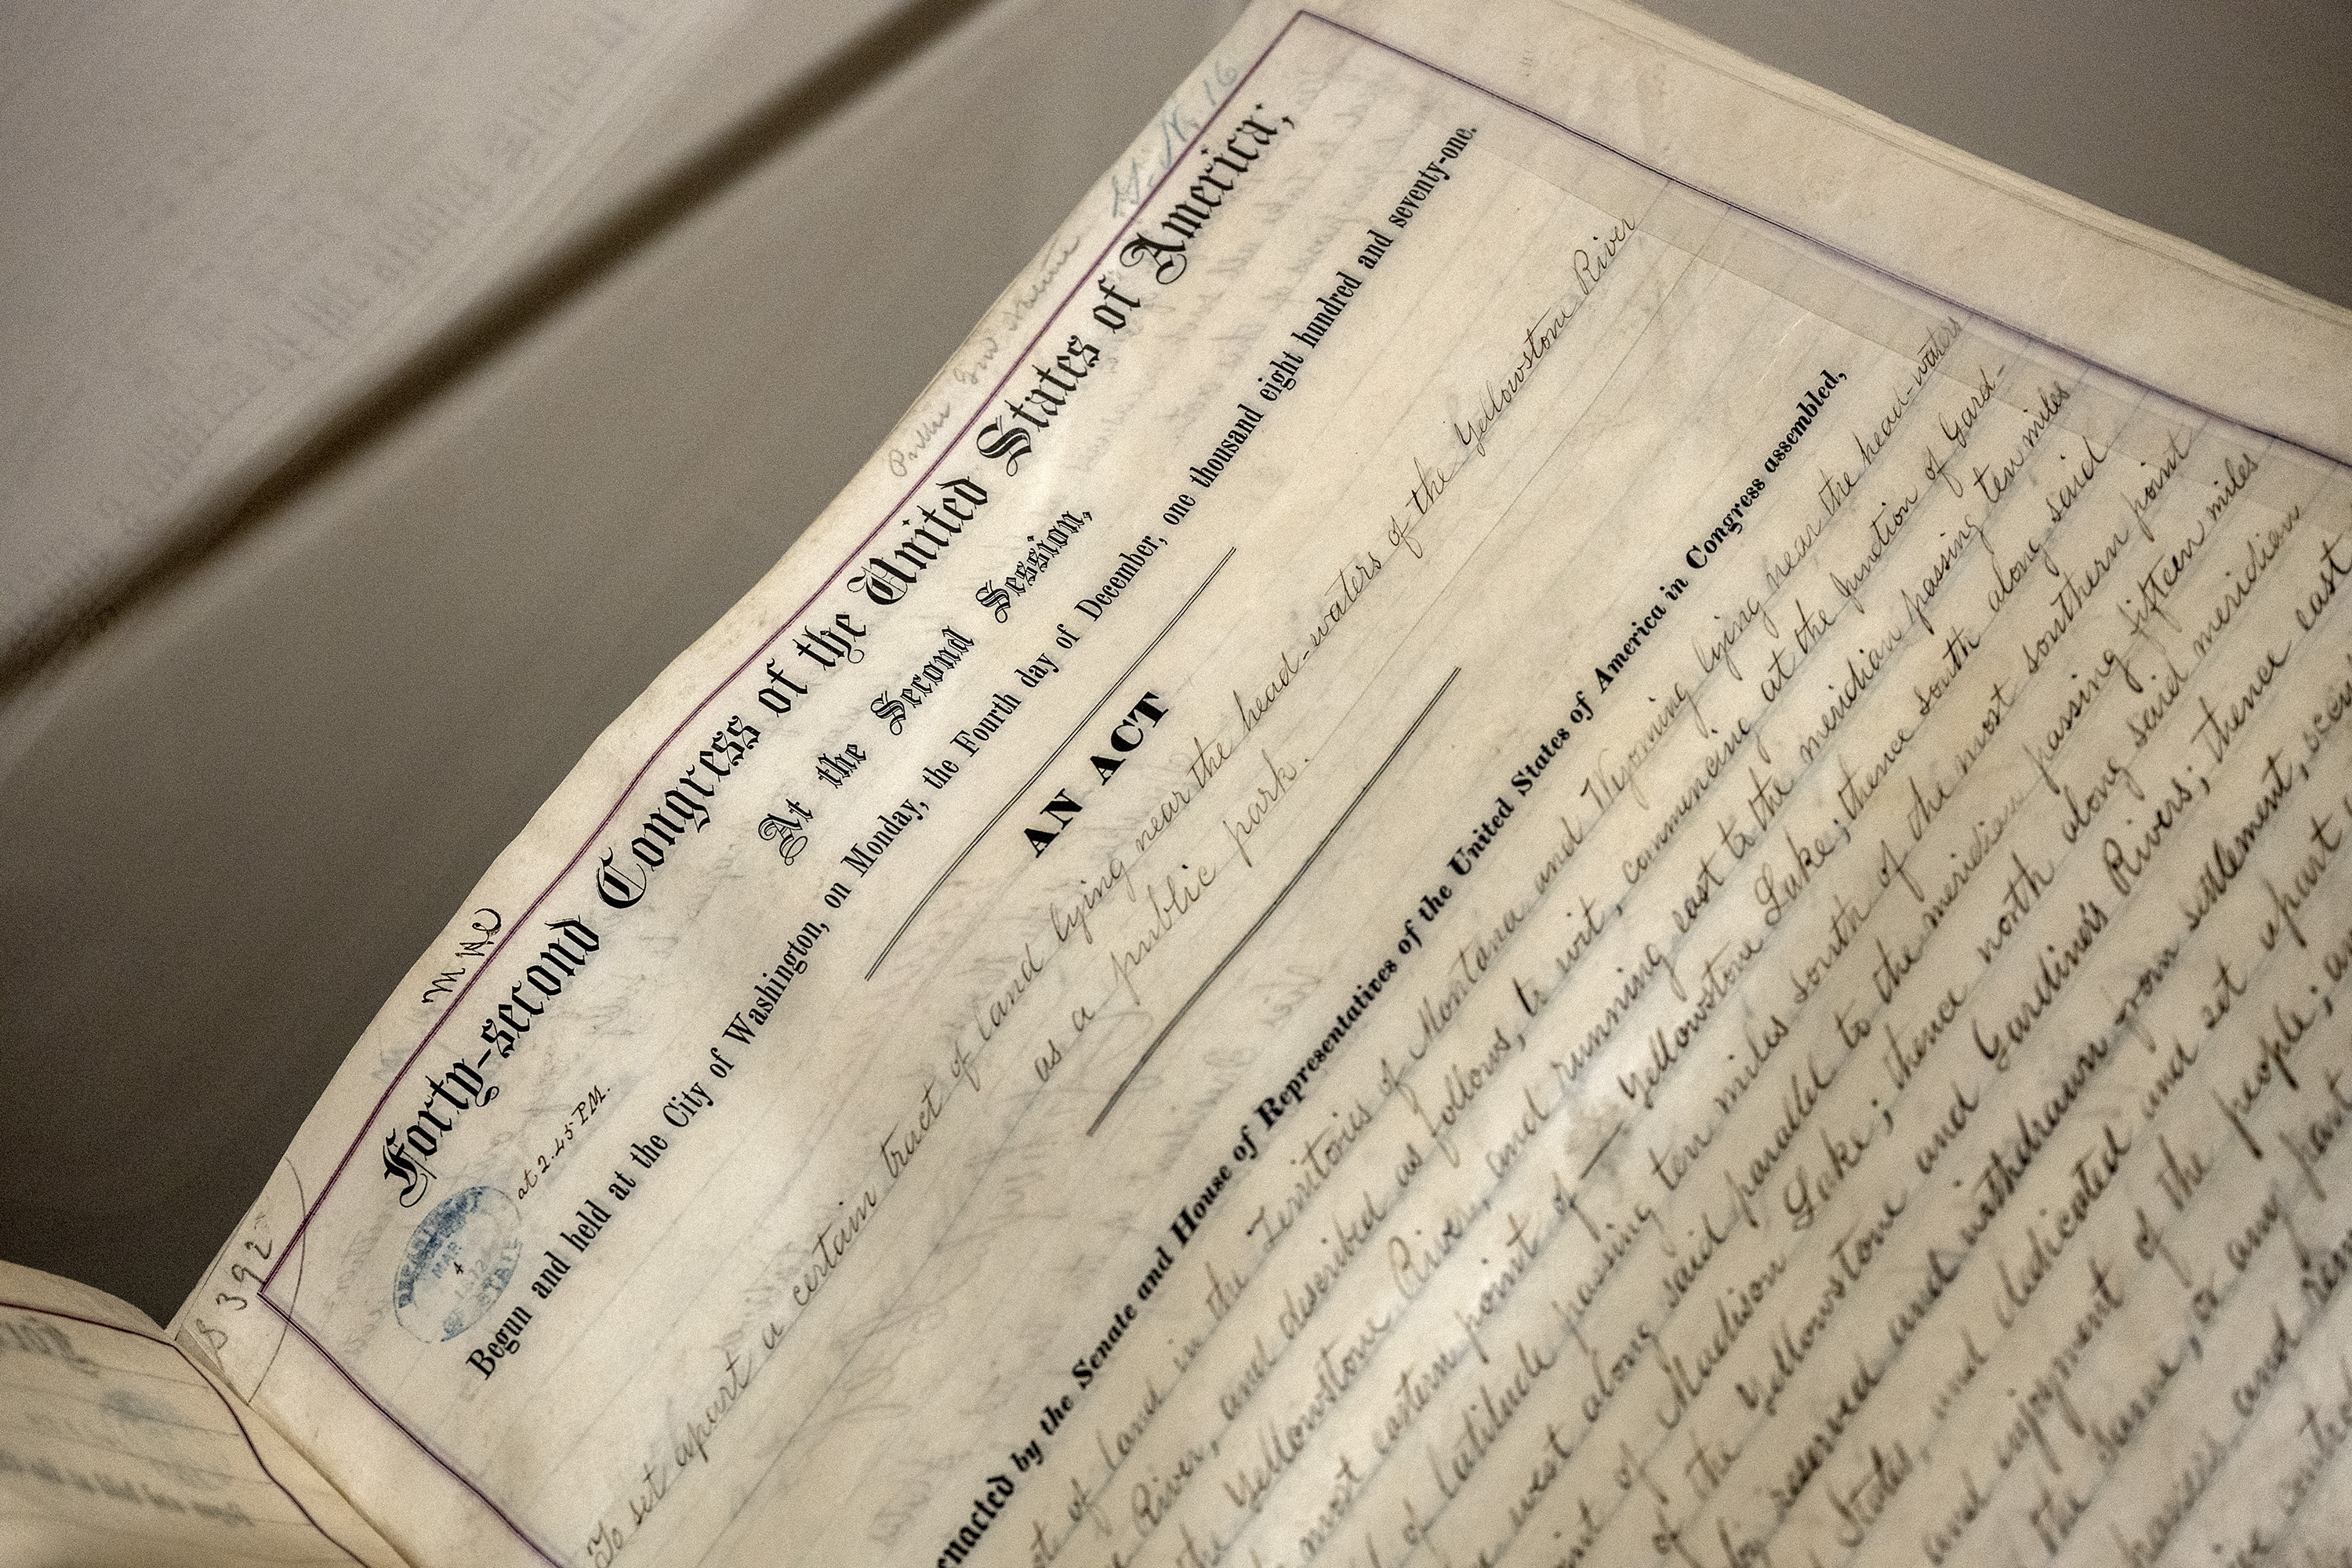 S 392
Forty-second Congress of the United States of America;
at 2.45 P.M.
At the Second Session,
DEPARTMENT
MAR
4
1872
STATE
Begun and held at the City of Washington, on Monday, the Fourth day of December, one thousand eight hundred and seventy-one.
AN ACT
To set apart a certain tract of land lying near the head-waters of the Yellowstone River
as a public park.
enacted by the Senate and House of Representatives of the United States of America in Congress assembled,
of land in the Territories of Montana and Wyoming lying near the head-waters
River, and described as follows, to wit, commencing at the junction of Gard-
the Yellowstone River, and running east to the meridian passing ten miles
most eastern point of Yellowstone Lake; thence south along said
of latitude passing ten miles south of the most southern point
west along said parallel to the meridian passing fifteen miles
point of Madison Lake; thence north along said meridian
of the Yellowstone and Gardiner's Rivers; thence east
reserved and withdrawn from settlement,
States, and dedicated and set apart
and enjoyment of the people;
the same, or any part